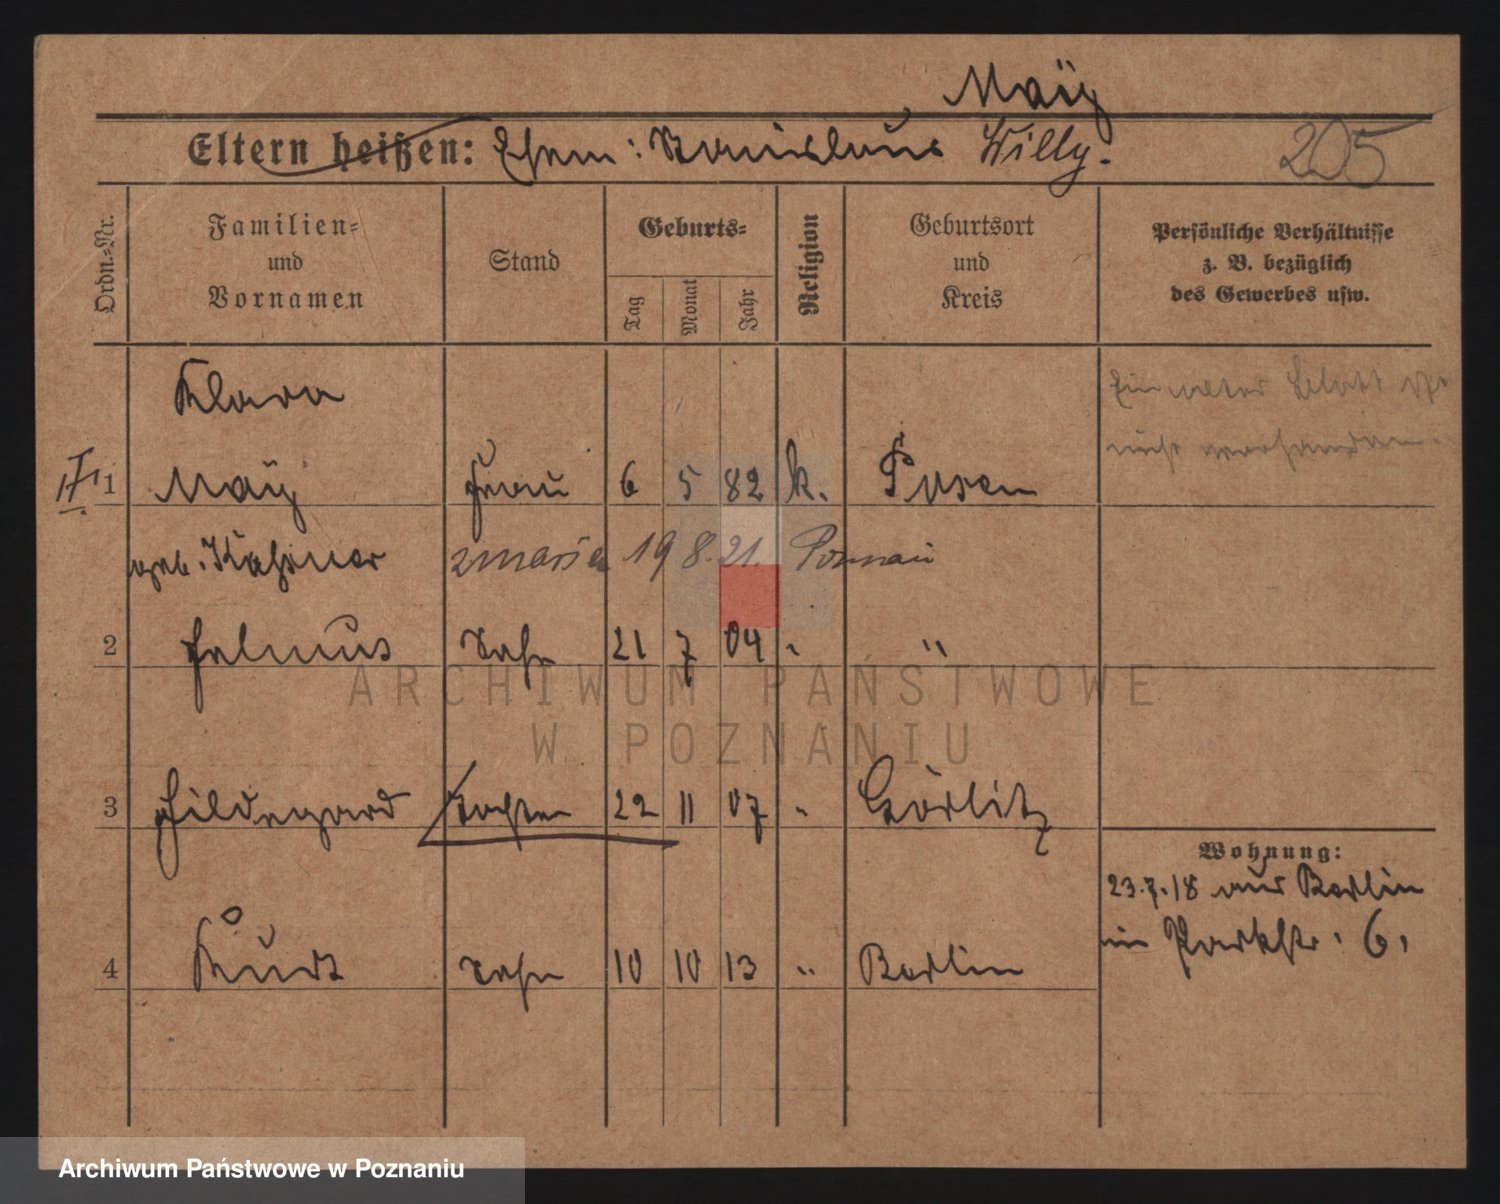 Maÿ
Eltern heißen: Ehem: Stanislaus Willy.
205
Ordn.-Nr.
Familien-
und
Vornamen
Stand
Geburts-
Tag
Monat
Jahr
Religion
Geburtsort
und
Kreis
Persönliche Verhältnisse
z. B. bezüglich
des Gewerbes usw.
Klara
Ein weter Blatt ist
nicht vorhanden.
1 Maÿ Frau 6 5 82 k. Posen
geb. zmarła 19 8. 21. Poznań
2 Helmut Sohn 21 7 04 " "
3 Hildegard Tochter 22 11 07 " Görlitz
Wohnung:
23.7.18 aus Berlin
in Parkstr. 6.
4 Kurt Sohn 10 10 13 " Berlin
ARCHIWUM PAŃSTWOWE
W POZNANIU
Archiwum Państwowe w Poznaniu